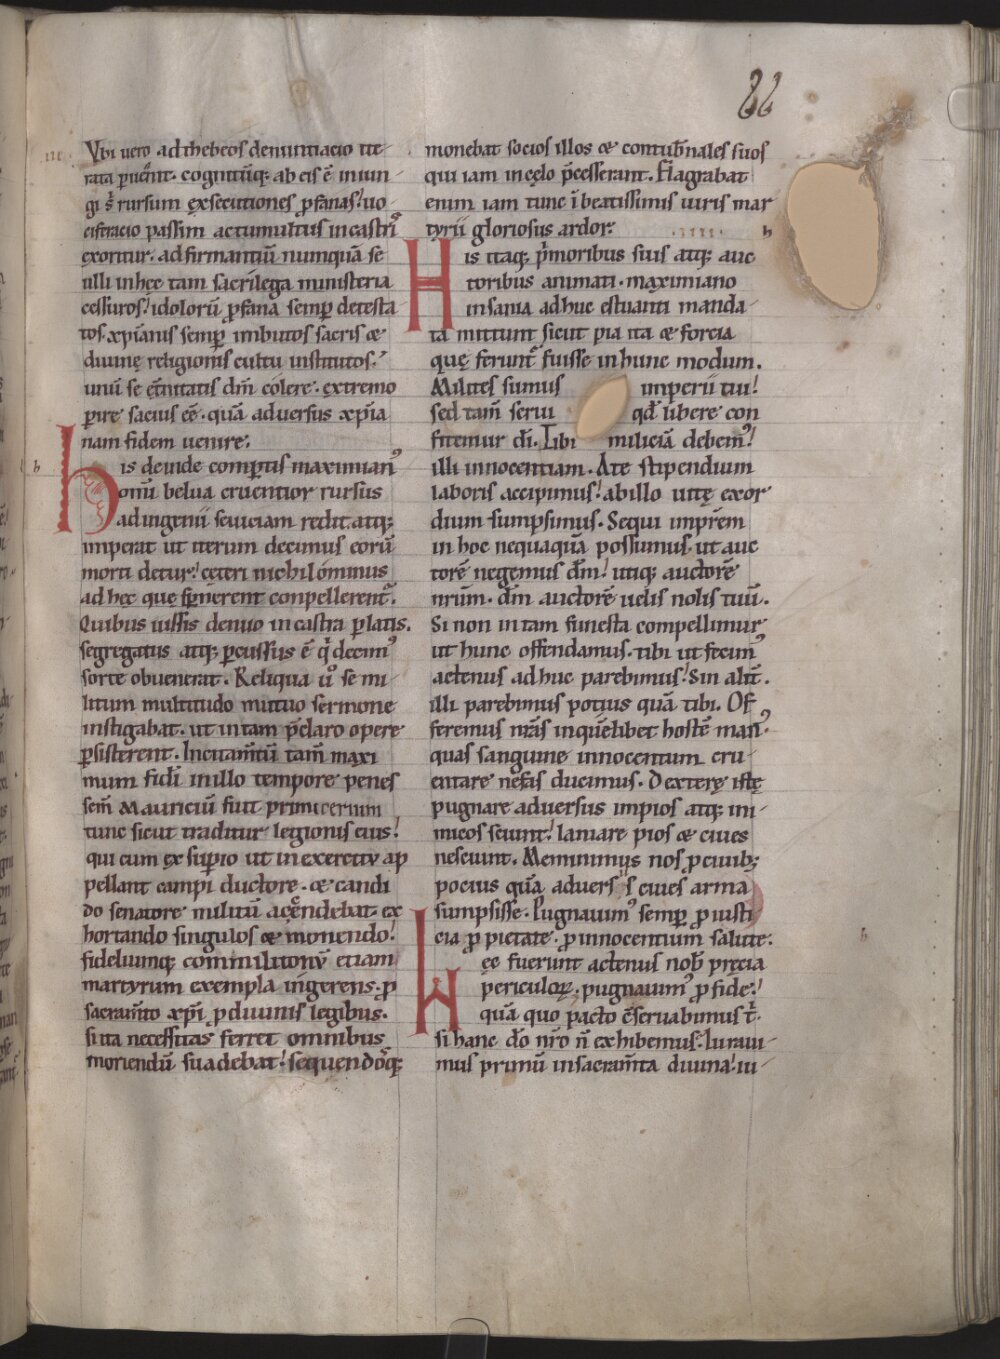 66
.iii.
Vbi uero ad thebeos denuntiatio ite-
rata ꝑuen̄it. cognitūq; ab eis ē iniun-
gi s̄ rursum exsecutiones ꝓfanas! uo-
ciferacio passim ac tumultus in castris
exoritur. adfirmantiū nunquā se
ulli in hęc tam sacrilega ministeria
cessuros! idolorū ꝓfana semꝑ detesta
tos. xp̄ianis semꝑ imbutos sacris &
diuinę religionis cultu institutos!
unū se et̄nitatis dm̄ colere. extremo
ꝑire sacius eē. quā aduersus xp̄ia
nam fidem uenire.
h
His deinde comꝑtis maximianꝰ
omī belua cruentior rursus
ad ingenii seuiciam redit. atq;
imperat ut iterum decimus eorū
morti detur! cęteri nichilominus
ad hęc quę sꝑnerent conpellerent᷑.
Quibus iussis denuo in castra ꝑlatis.
segregatus atq; ꝑcussus ē q̇ decimꝰ
sorte obuenerat. Reliqua u̇ se mi-
litum multitudo mutuo sermone
instigabat. ut in tam p̄claro opere
ꝑsisterent. Incitam̄tū tam̄ maxi
mum fidei in illo tempore penes
sem̄ Mauriciū fuit primicerium
tunc sicut traditur legionis eius!
qui cum exsuꝑio ut in exercitu ap
pellant campi ductore. & candi
do senatore militū accendebat. ex
hortando singulos & monendo!
fideliumq; commilitonū etiam
martyrum exempla ingerens. ꝓ
sacram̄to xp̄i ꝓ diuinis legibus.
si ita necessitas ferret omnibus
moriendū suadebat! sequendosq;
monebat socios illos & contub̄nales suos
qui iam in cęlo p̄cesserant. Flagrabat
enim iam tunc ī beatissimis uiris mar
tyrii gloriosus ardor.
.iiii.
h
His itaq; p̄moribus suis atq; auc
toribus animati. maximiano
insania adhuc estuanti manda-
ta mittunt sicut pia ita & forcia
quę ferunt᷑ fuisse in hunc modum.
Milites sumus imperii tui!
sed tam̄ serui qd̄ libere con
fitemur dī. Tibi miliciā debemꝰ!
illi innocentiam. A te stipendium
laboris accipimus! ab illo uitę exor
dium sumpsimus. Sequi imp̄rem
in hoc nequaquā possumus. ut auc
torē negemus dm̄! utiq; auctorē
nrūm. dm̄ auctorē uelis nolis tuū.
Si non in tam funesta compellimur
ut hunc offendamus. tibi ut fecimꝰ
actenus adhuc parebimus! Sin alit̄.
illi parebimus potius quā tibi. Of
ferimus nrās in quēlibet hostē manꝰ.
quas sanguine innocentum cru-
entare nefas ducimus. Dexterę istę
pugnare aduersus impios atq; ini-
micos sciunt! laniare pios & ciues
nesciunt. Meminimus nos ꝓ ciuib;
pocius quā aduersus ciues arma
sumpsisse. Pugnauimꝰ semꝑ ꝓ iusti
cia ꝓ pietate. ꝓ innocentium salute.
h
Hęc fuerunt actenus nob̄ precia
periculoꝝ. pugnauimꝰ ꝓ fide!
quā quo pacto c̄seruabimus t̄.
si hanc do nr̄o n̄ exhibemus! Iuraui-
mus primū in sacram̄ta diuina! iu-